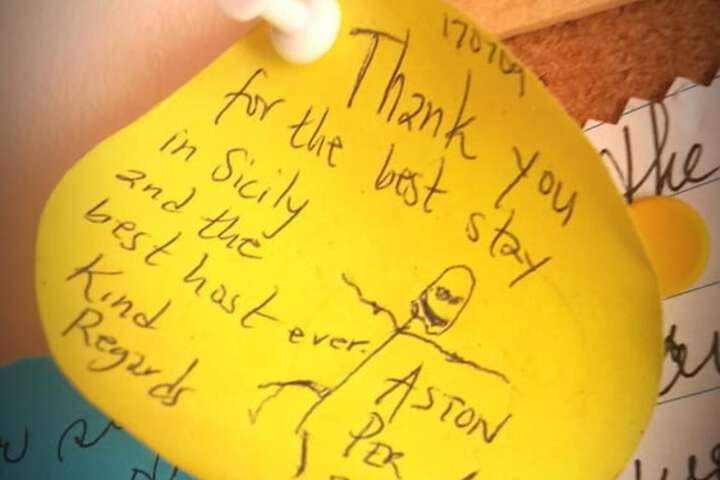 170709
Thank you
for the best stay
in Sicily
and the
best host ever.
Kind
Regards
ASTON
PER
the